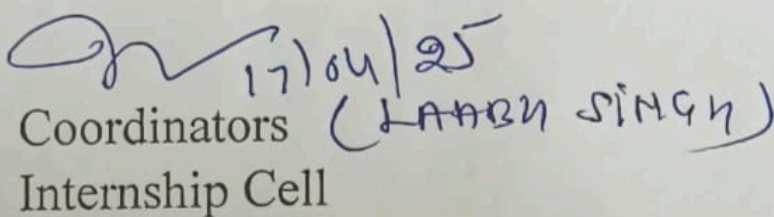 17/04/25
Coordinators (LAABH SINGH)
Internship Cell